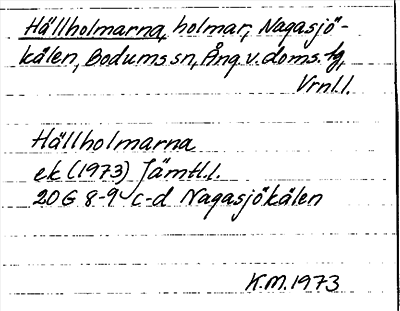 Hällholmarna, holmar, Nagasjö-
kälen, Bodums sn, Ång. v. doms. tg,
Vrnl.l.
Hällholmarna
ek (1973) Jämtl.l.
20G 8-9 c-d Nagasjökälen
K.M. 1973